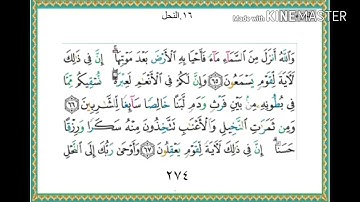 ١٦.النحل
Made with KINEMASTER
وَاللَّهُ أَنزَلَ مِنَ السَّمَآءِ مَآءً فَأَحْيَا بِهِ الْأَرْضَ بَعْدَ مَوْتِهَآ ۚ إِنَّ فِى ذَٰلِكَ
لَآيَةً لِّقَوْمٍ يَسْمَعُونَ ٦٥ وَإِنَّ لَكُمْ فِى الْأَنْعَٰمِ لَعِبْرَةً ۖ نُّسْقِيكُم مِّمَّا
فِى بُطُونِهِۦ مِنۢ بَيْنِ فَرْثٍ وَدَمٍ لَّبَنًا خَالِصًا سَآئِغًا لِّلشَّٰرِبِينَ ٦٦
وَمِن ثَمَرَٰتِ النَّخِيلِ وَالْأَعْنَٰبِ تَتَّخِذُونَ مِنْهُ سَكَرًا وَرِزْقًا
حَسَنًا ۗ إِنَّ فِى ذَٰلِكَ لَآيَةً لِّقَوْمٍ يَعْقِلُونَ ٦٧ وَأَوْحَىٰ رَبُّكَ إِلَى النَّحْلِ
٢٧٤